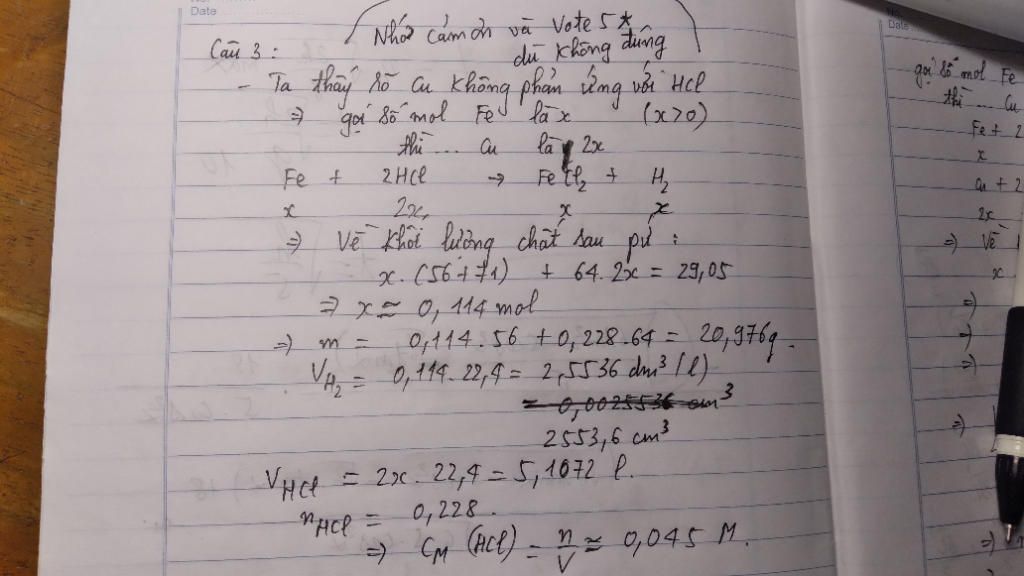 Date
Nhớ cảm ơn và Vote 5*
dù không đúng
Câu 3:
- Ta thấy số Cu không phản ứng với HCl
=> gọi số mol Fe là x (x>0)
thì ... Cu là 2x
Fe + 2HCl -> FeCl₂ + H₂
x 2x x x
=> Về khối lượng chất sau pứ:
x.(56+71) + 64.2x = 29,05
=> x ≈ 0,114 mol
=> m = 0,114.56 + 0,228.64 = 20,976g.
V_H₂ = 0,114.22,4 = 2,5536 dm³ (l)
= 0,0025536 cm³
2553,6 cm³
V_HCl = 2x.22,4 = 5,1072 l.
n_HCl = 0,228.
=> C_M (HCl) = n/V ≈ 0,045 M.
Date
gọi số mol Fe
thì ... Cu
Fe + 2
x
Cu + 2
2x
=> Về
x
=>
=>
=>
=>
=>